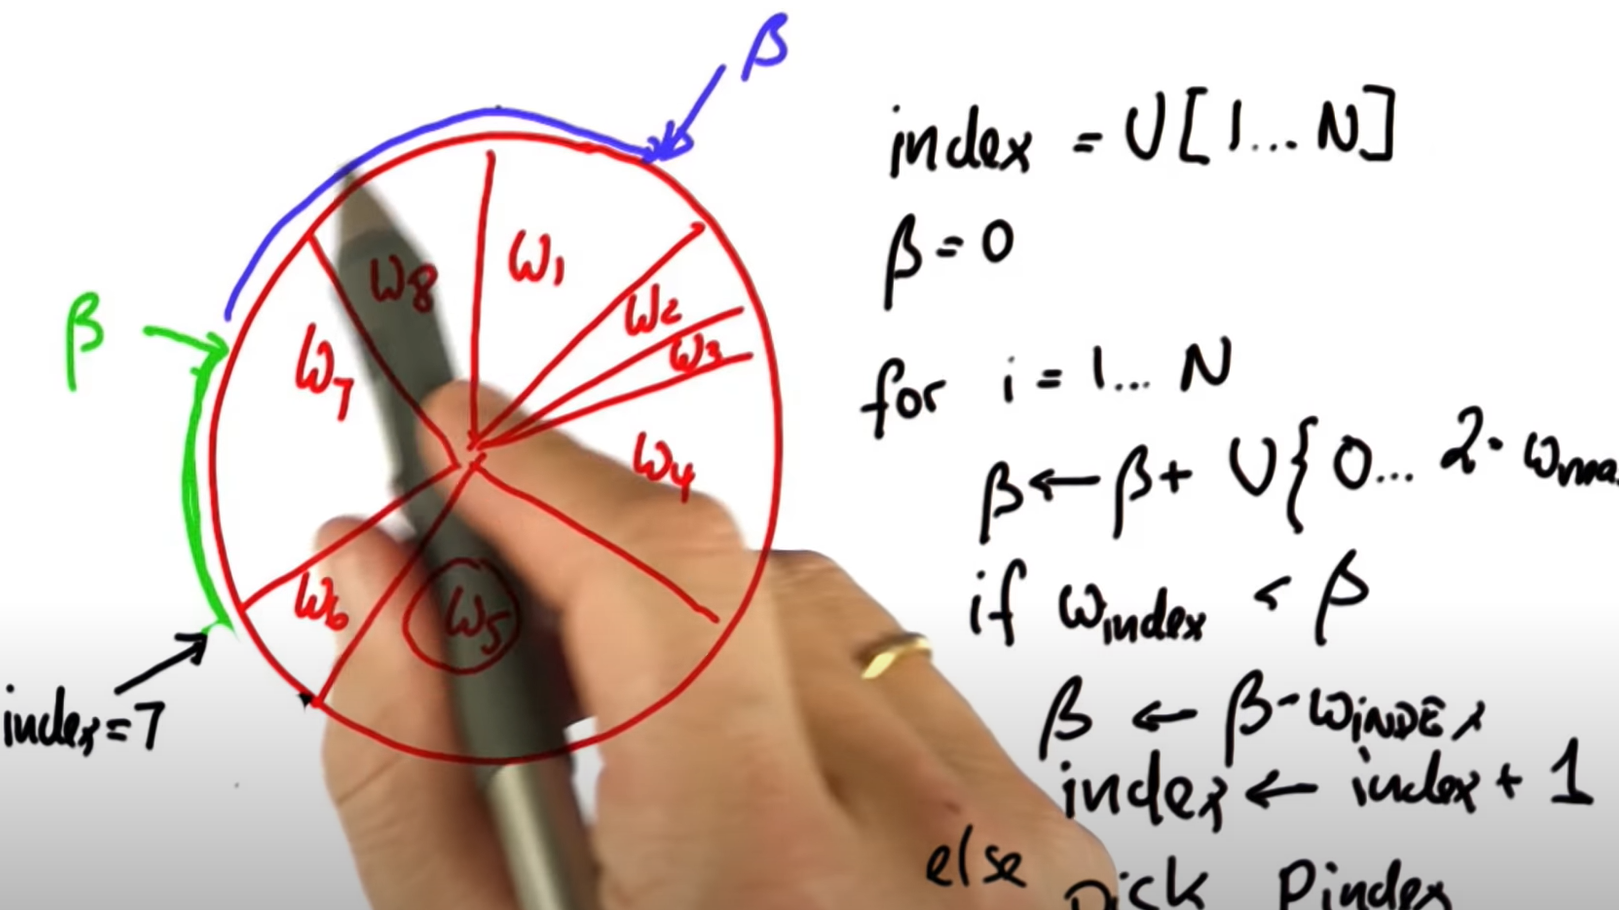 β
β
ω1
ω2
ω3
ω4
ω5
ω6
ω7
ω8
index=7
index = U[1... N]
β = 0
for i = 1... N
β ← β + U{0... 2· ωma
if ωindex < β
β ← β - ωINDEX
index ← index + 1
else
pick Pindex